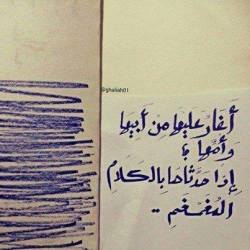 @ghaliah01
أَغَارُ عَليهَا مِن أَبِيهَا
وَأُمِّهَا
إِذَا حَدَّثَاهَا بِالكَلَامِ
المُغَمْغَمِ ..